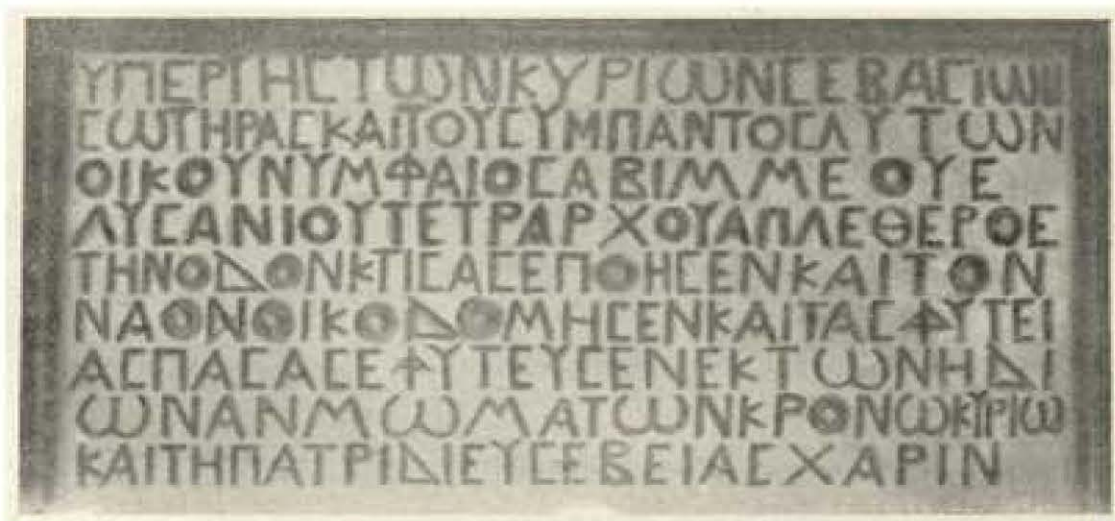 ΥΠΕΡΓΗϹΤωΝΚΥΡΙωΝϹΕΒΑϹΙωΙΙΙ
ϹωΤΗΡΑϹΚΑΙΤΟΥϹΥΜΠΑΝΤΟϹΛΥΤωΝ
ΟΙΚΟΥΝΥΜΦΑΙΟϹΑΒΙΜΜΕΟΥΕ
ΛΥϹΑΝΙΟΥΤΕΤΡΑΡΧΟΥΑΠΛΕΘΕΡΟΕ
ΤΗΝΟΔΟΝΚΤΙϹΑϹΕΠΟΗϹΕΝΚΑΙΤΟΝ
ΝΑΟΝΟΙΚΟΔΟΜΗϹΕΝΚΑΙΤΑϹΦΥΤΕΙ
ΑϹΠΑϹΑϹΕΦΥΤΕΥϹΕΝΕΚΤωΝΗΔΙ
ωΝΑΝΜωΜΑΤωΝΚΡΟΝωΚΥΡΙω
ΚΑΙΤΗΠΑΤΡΙΔΙΕΥϹΕΒΕΙΑϹΧΑΡΙΝ